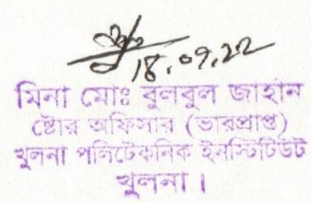 18.09.22
মিনা মোঃ বুলবুল জাহান
ষ্টোর অফিসার (ভারপ্রাপ্ত)
খুলনা পলিটেকনিক ইনস্টিটিউট
খুলনা।